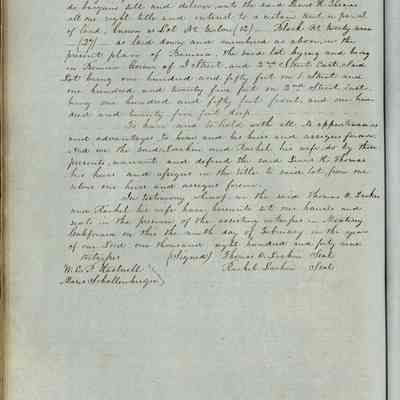 do bargain sell and deliver unto the said Lewis H. Thomas
all our right title and interest to a certain and a parcel
of land, known as Lot No Twelve (12) — Block No Twenty nine
(29) — as laid down and numbered as above, in the
present plan of Benicia, the said lot lying and being
in Benicia corner of I Street, and 2nd Street East. Said
Lot being one hundred and fifty feet on I Street and
one hundred and twenty five feet on 2nd Street East.
being one hundred and fifty feet front, and one hun-
dred and twenty five feet deep.
To have and to hold with all its appurtenances
and advantages to him and his heirs and assigns forever
And we the said Larkin and Rachel his wife do by these
presents, warrant and defend the said Lewis H. Thomas
his heirs and assigns in the title to said lot from our
selves our heirs and assigns forever.
In testimony whereof we the said Thomas O. Larkin
and Rachel his wife have hereunto set our hands and
seals in the presence of the assisting witnesses in Monterey
California on this the ninth day of February in the year
of our Lord one thousand eight hundred and fifty nine
witnesses (Signed) Thomas O. Larkin Seal
W. E. P. Hartnell Rachel Larkin Seal
Maria Schallenberger